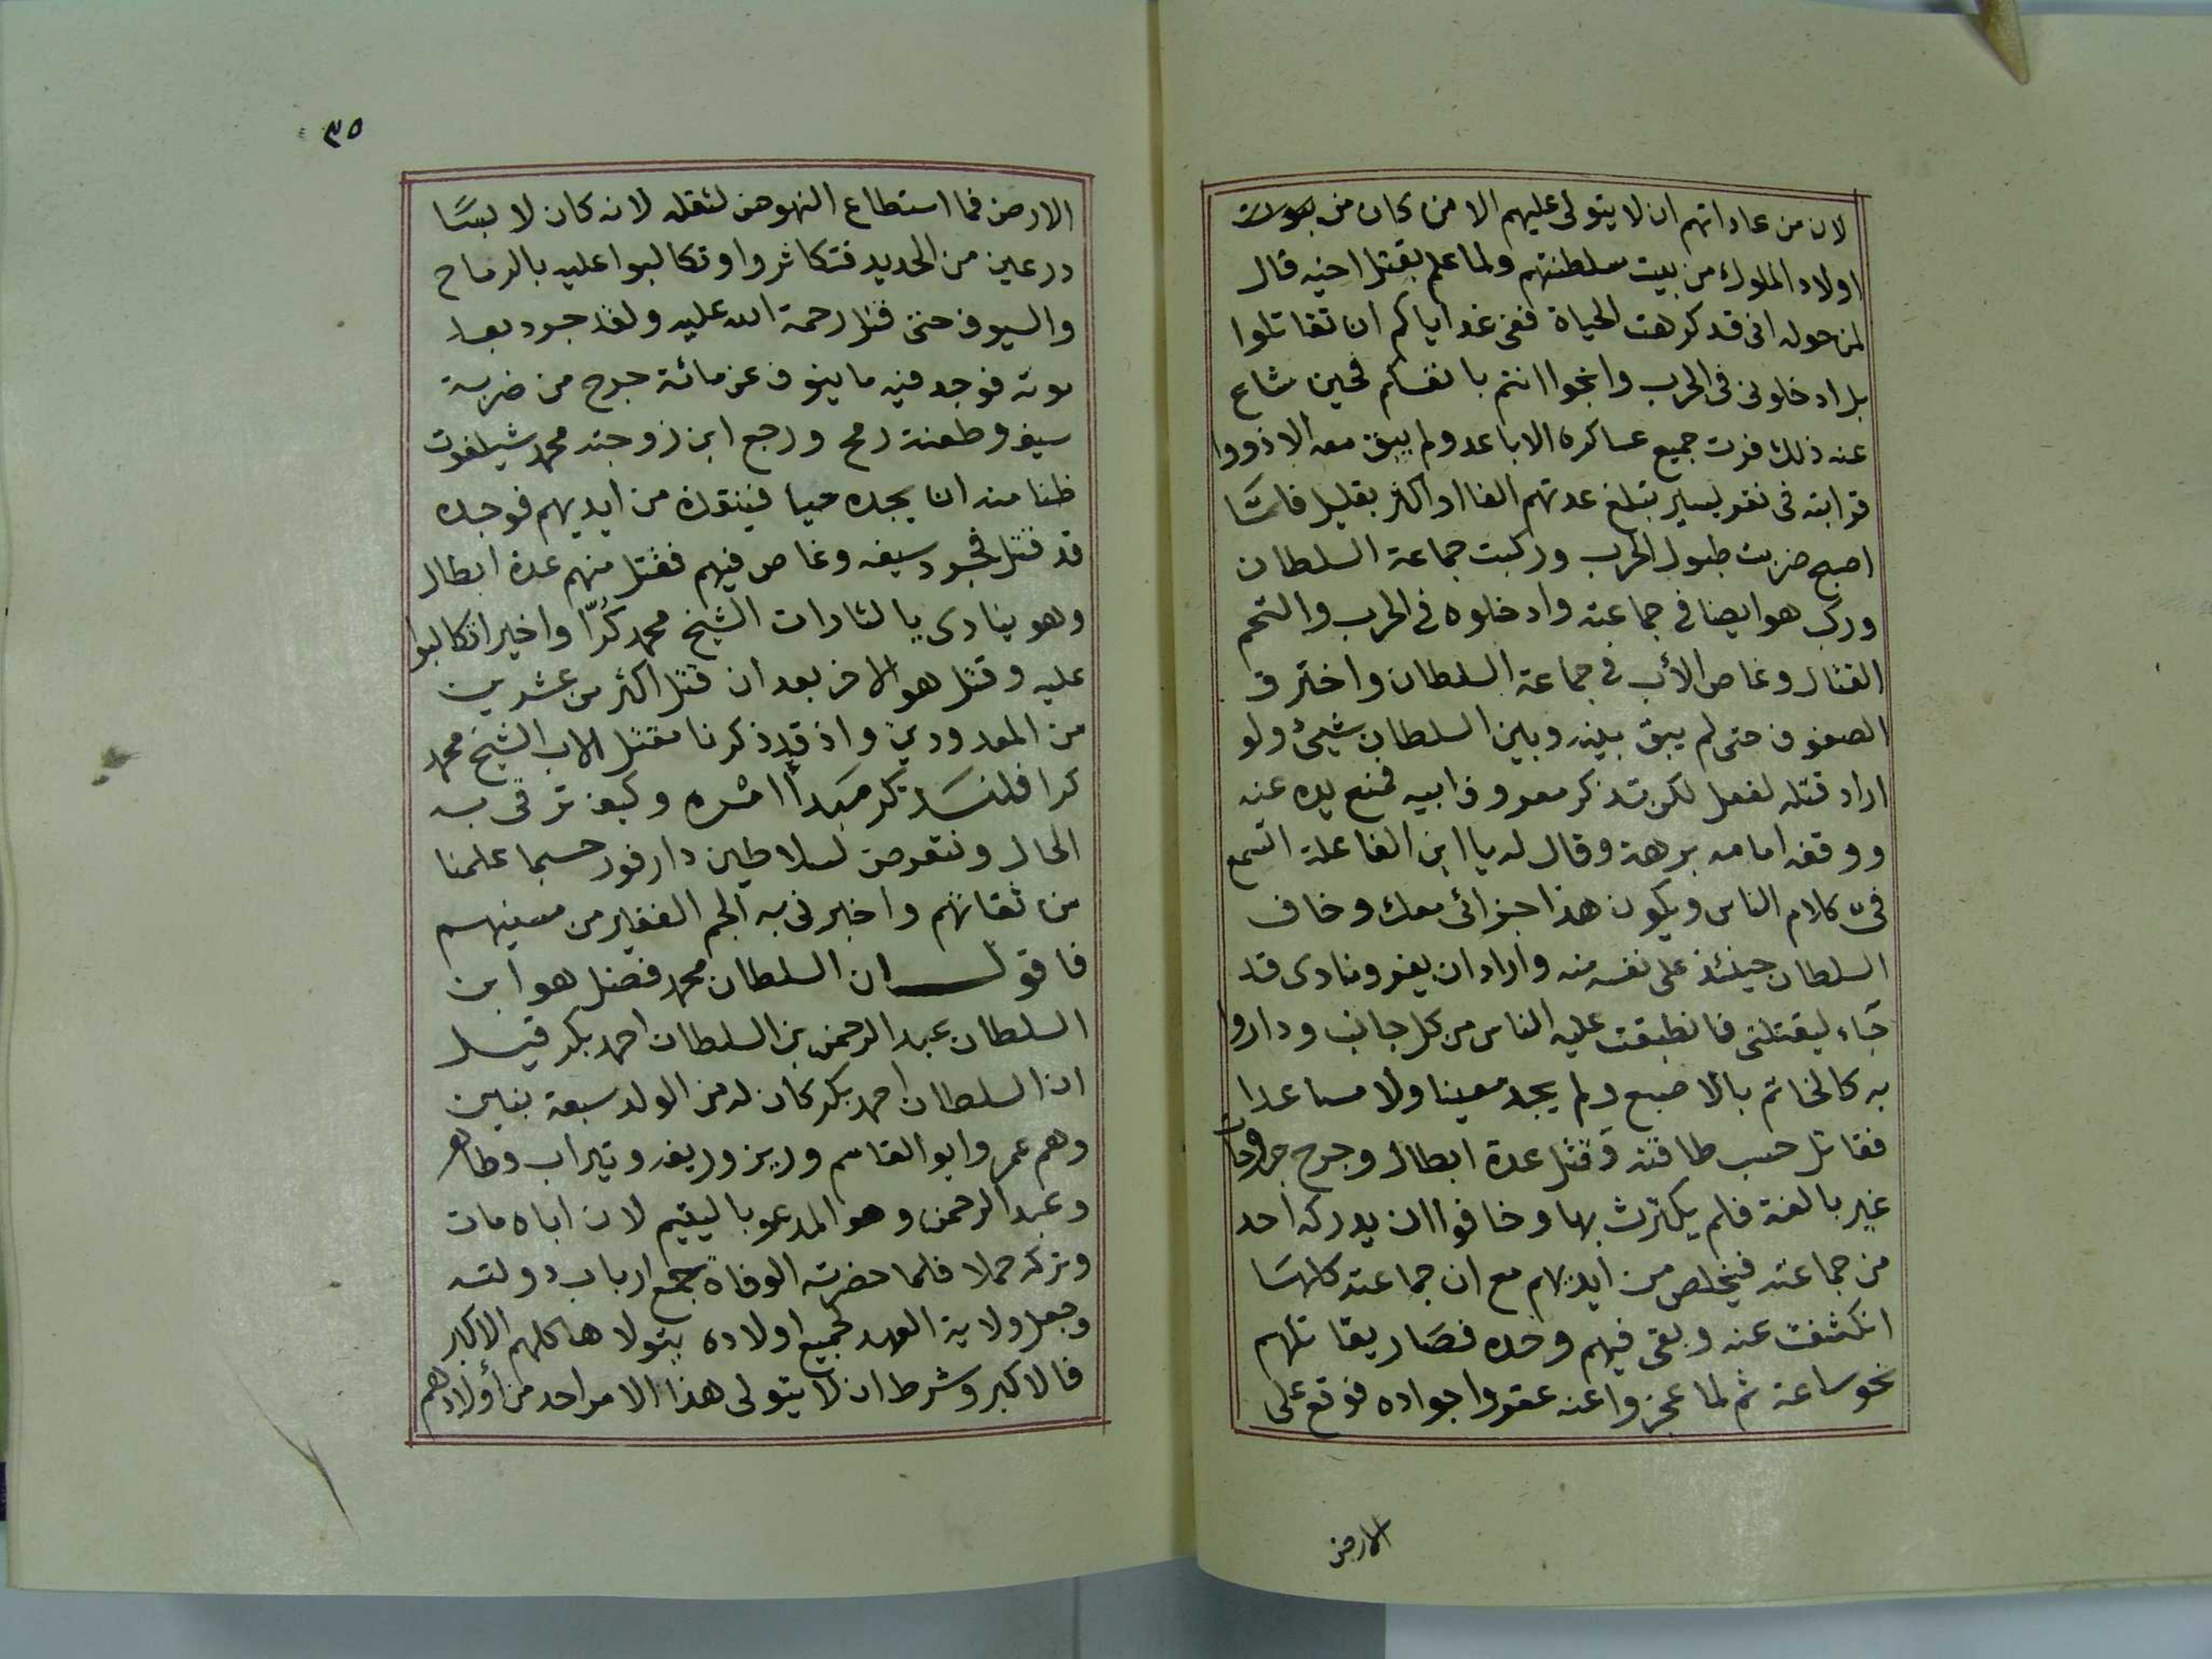 لان من عاداتهم ان لا يتولى عليهم الا من كان من
اولاد الملوك من بيت سلطنتهم ولما علم بقتل اخيه قال
لمن حوله انى قد كرهت الحياة ففى غد اياكم ان تقاتلوا
بل ادخلونى فى الحرب وانجوا انتم بانفسكم فحين شاع
عنه ذلك فرت جميع عساكره الاباعد ولم يبق معه الا ذووا
قرابته فى نفر يسير تبلغ عدتهم الفا او اكثر بقليل فلما
اصبح ضربت طبول الحرب وركبت جماعة السلطان
وركب هو ايضا فى جماعته وادخلوه فى الحرب والتحم
القتال وغاص الأب فى جماعة السلطان واخترق
الصفوف حتى لم يبق بينه وبين السلطان شيئ ولو
اراد قتله لفعل لكن تذكر معروف ابيه فمنع يده عنه
ووقف امامه برهة وقال له يا ابن الفاعلة اتسمع
فىّ كلام الناس ويكون هذا جزائى معك وخاف
السلطان حينئذ على نفسه منه واراد ان يفر ونادى قد
جاء ليقتلنى فانطبقت عليه الناس من كل جانب وداروا
به كالخاتم بالاصبع ولم يجد معينا ولا مساعدا
فقاتل حسب طاقته وقتل عدة ابطال وجرح جراحات
غير بالغة فلم يكترث بها وخافوا ان يدركه احد
من جماعته فيخلص من ايديهم مع ان جماعته كلها
انكشفت عنه وبقى فيهم وحده فصار يقاتلهم
نحو ساعة ثم لما عجزوا عنه عقروا جواده فوقع على
الارض
٣٥
الارض فما استطاع النهوض لثقله لانه كان لابسًا
درعين من الحديد فتكاثروا وتكالبوا عليه بالرماح
والسيوف حتى قتل رحمة الله عليه ولقد جرد بعد
موته فوجد فيه ما ينوف عن مائة جرح من ضربة
سيف وطعنة رمح ورجع ابن زوجته محمد شيلفوت
ظنا منه ان يجده حيا فينقذه من ايديهم فوجده
قد قتل فجرد سيفه وغاص فيهم فقتل منهم عدة ابطال
وهو ينادى يا لثارات الشيخ محمد كُرّا واخيرا تكالبوا
عليه وقتل هو الاخر بعد ان قتل اكثر من عشرين
من المعدودين واذ قد ذكرنا مقتل الاب الشيخ محمد
كرا فلنذكر مبدأ امره وكيف ترقى به
الحال ونتعرض لسلاطين دارفور حسبما علمنا
من ثقاتهم واخبرنى به الجم الغفير من مسنيهم
فاقول ان السلطان محمد فضل هو ابن
السلطان عبد الرحمن بن السلطان احمد بكر قيل
ان السلطان احمد بكر كان له من الولد سبعة بنين
وهم عمر وابو القاسم وريز وريفه وتيراب وطاهر
وعبد الرحمن وهو المدعو باليتيم لان اباه مات
وتركه حملا فلما حضرته الوفاة جمع ارباب دولته
وجعل ولاية العهد لجميع اولاده يتولاها كلهم الاكبر
فالاكبر وشرط ان لا يتولى هذا الامر احد من أولادهم